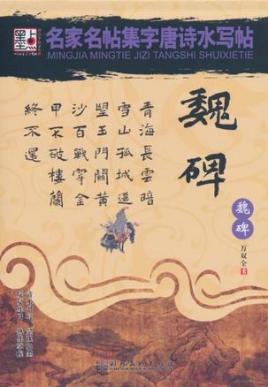 墨点
名家名帖集字唐诗水写帖
MINGJIA MINGTIE JIZI TANGSHI SHUIXIETIE
魏碑
青海長雲暗
雪山孤城遥
望玉門關黄
沙百戰穿金
甲不破樓蘭
終不還
魏碑
万双全